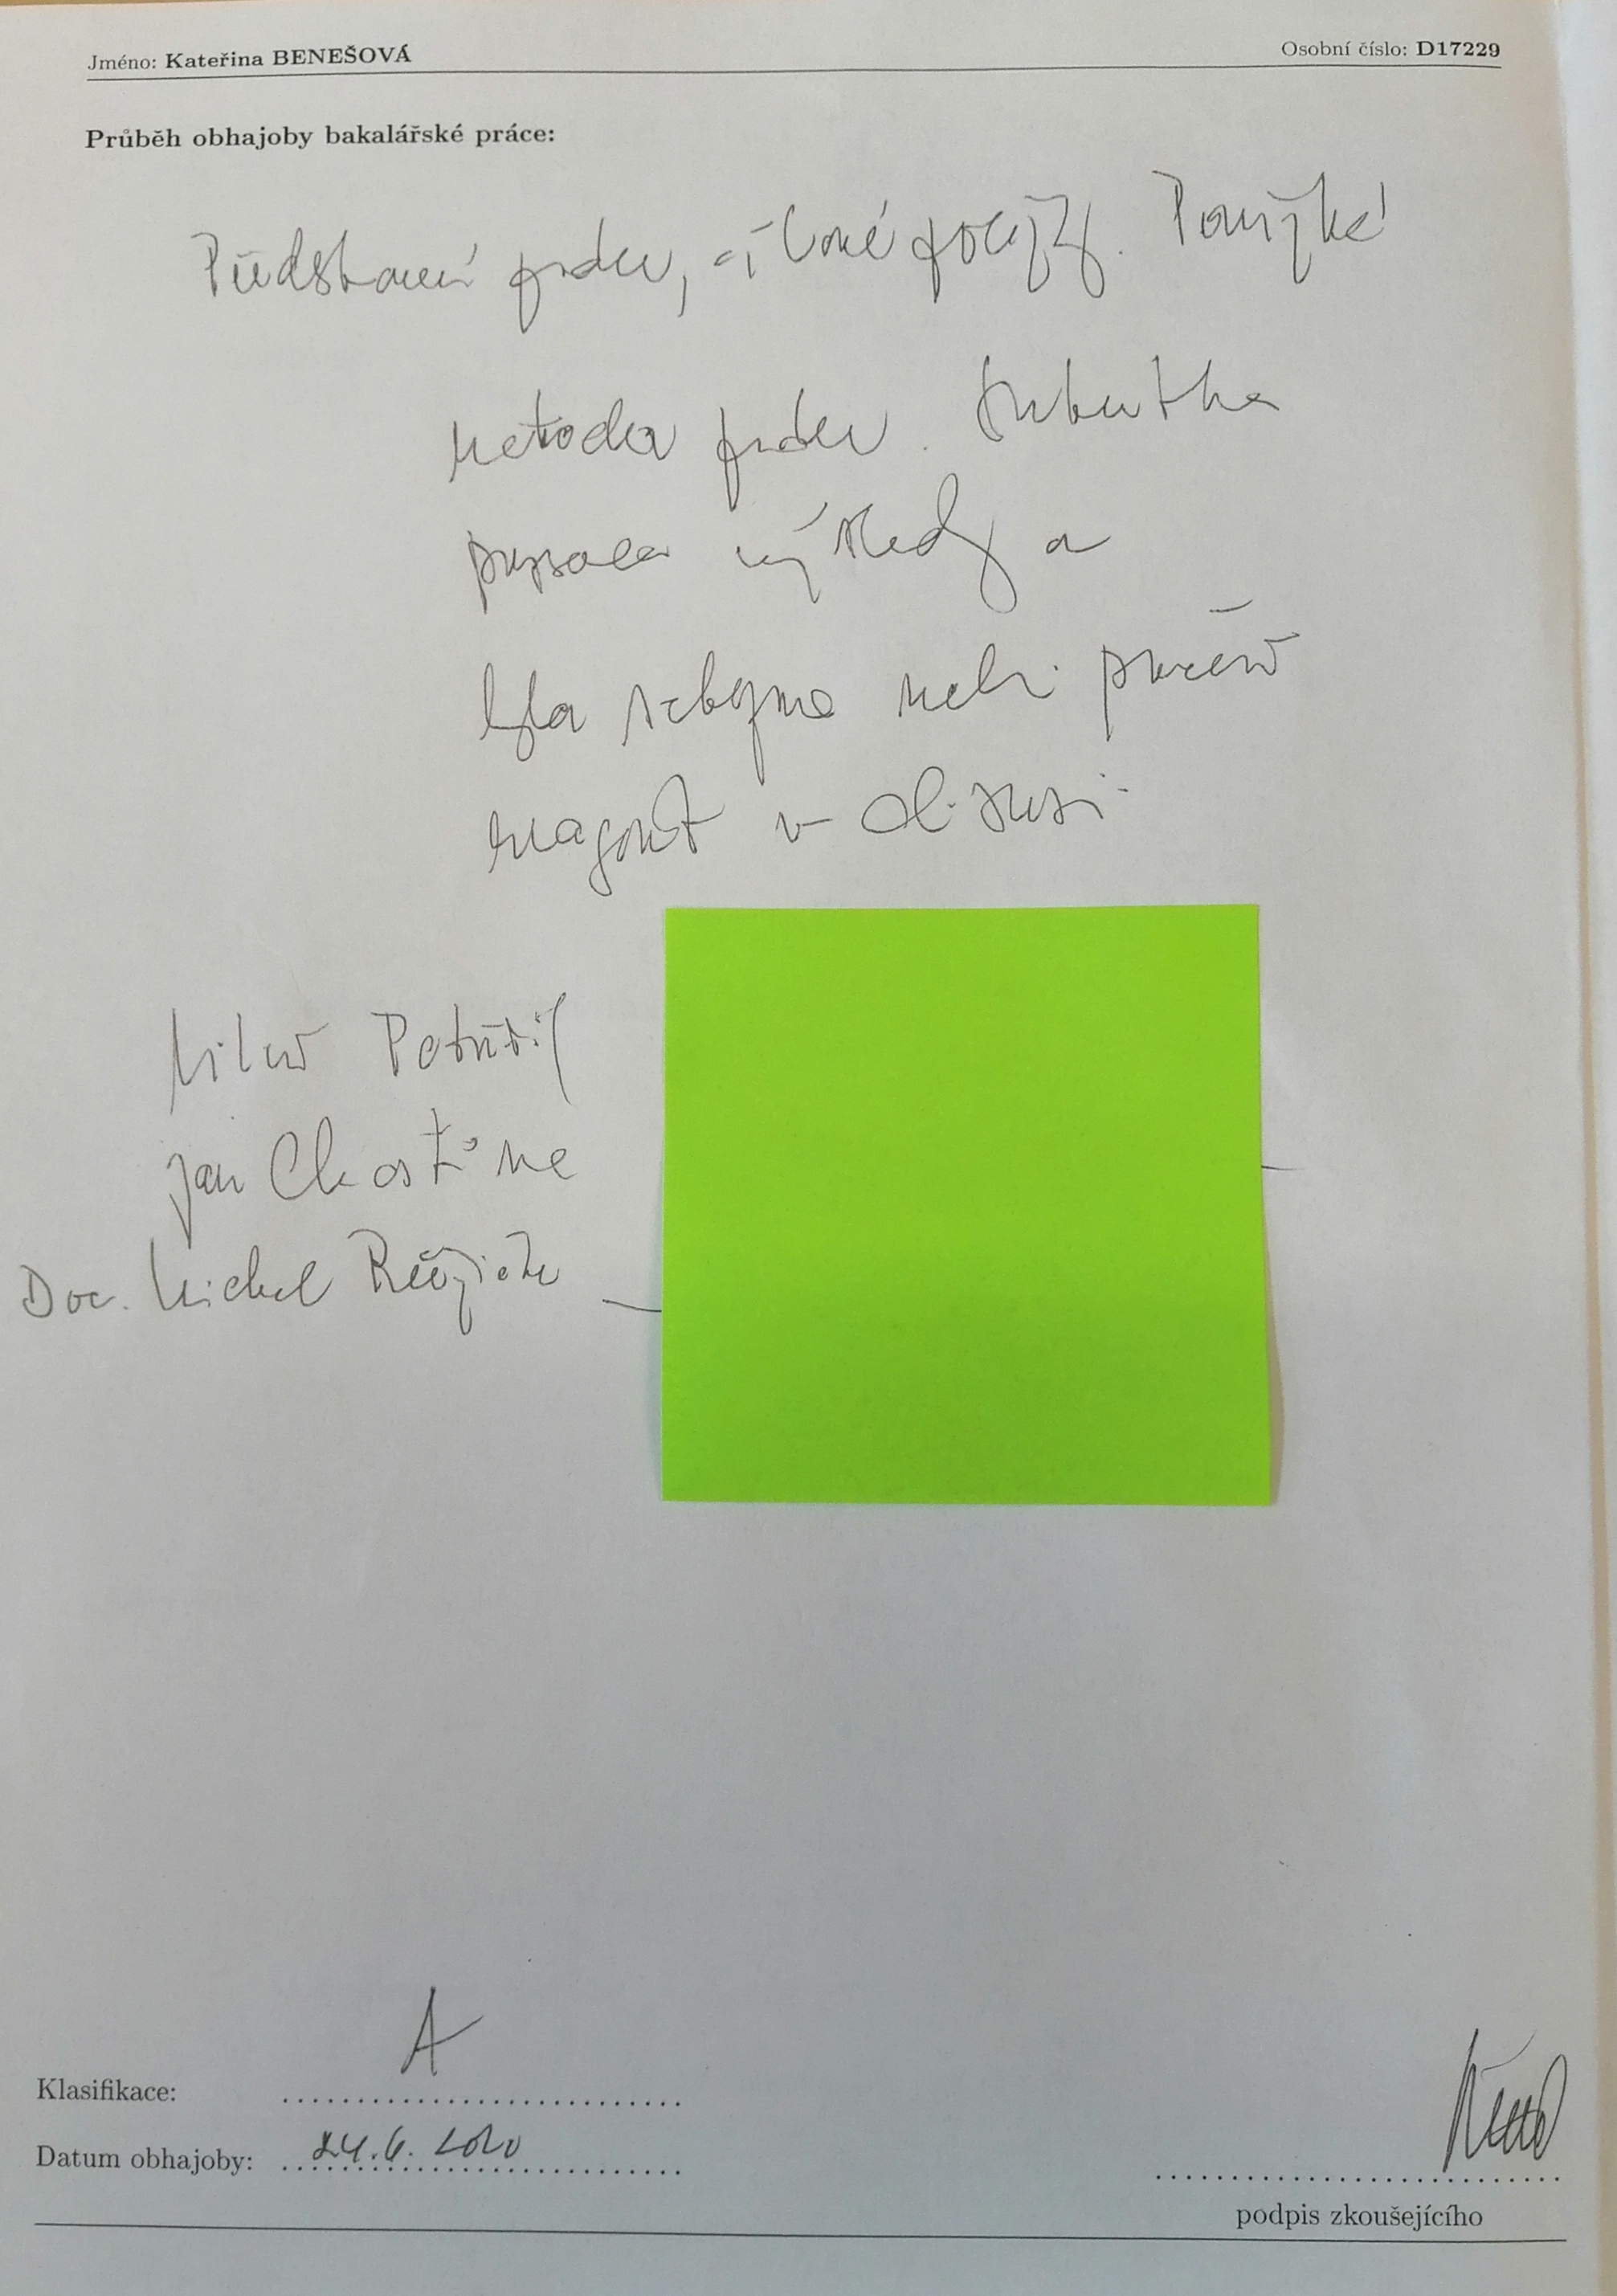 Jméno: Kateřina BENEŠOVÁ Osobní číslo: D17229
Průběh obhajoby bakalářské práce:
Představení práce, cílové Použitá
metoda práce. Studentka
popsala výsledky a
byla schopna velmi
reagovat v diskusi.
Jan Chostúne
Doc. Michal
A
Klasifikace:
Datum obhajoby: 24.6. 2020
podpis zkoušejícího